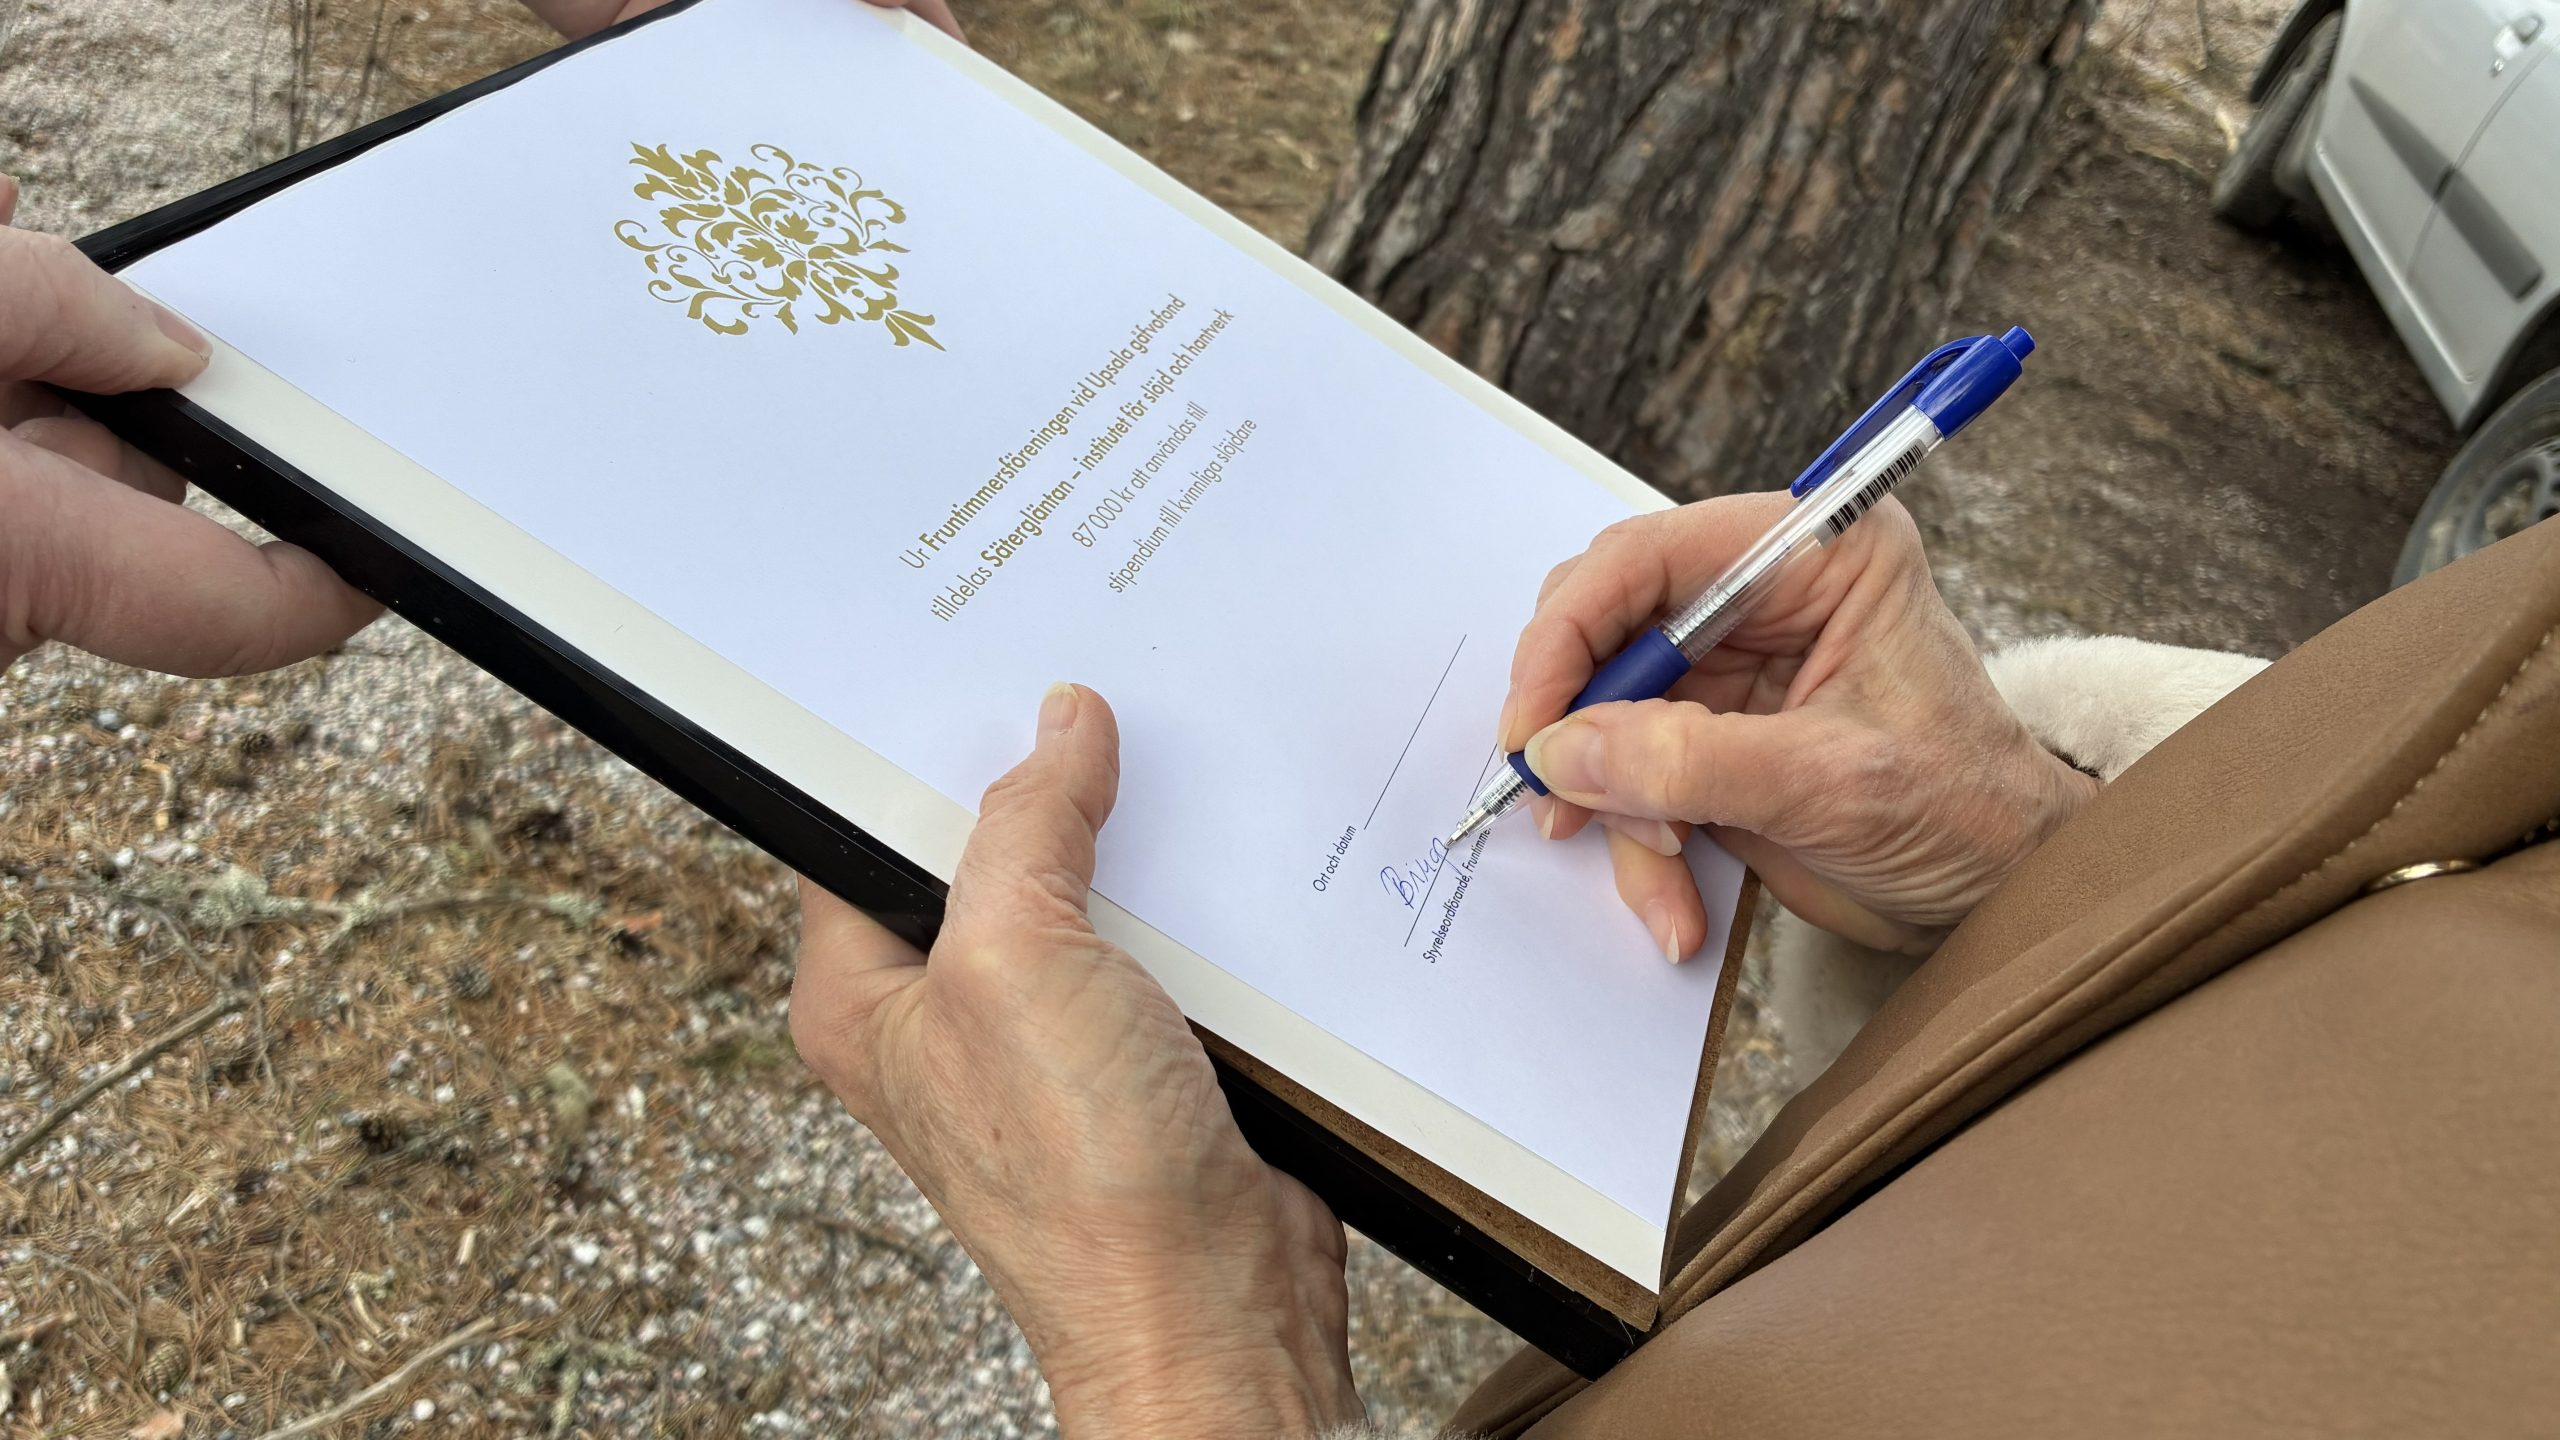 Ur Fruntimmersföreningen vid Upsala gåfvofond
tilldelas Säterglantan – institutet för slöjd och hantverk
87 000 kr att användas till
stipendium till kvinnliga slöjdare
Ort och datum
Styrelseordförande, Fruntimmer